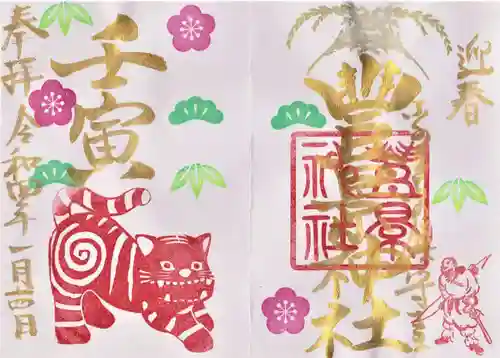 迎春
豊景神社
豊景神社
壬寅
奉拝 令和四年一月四日